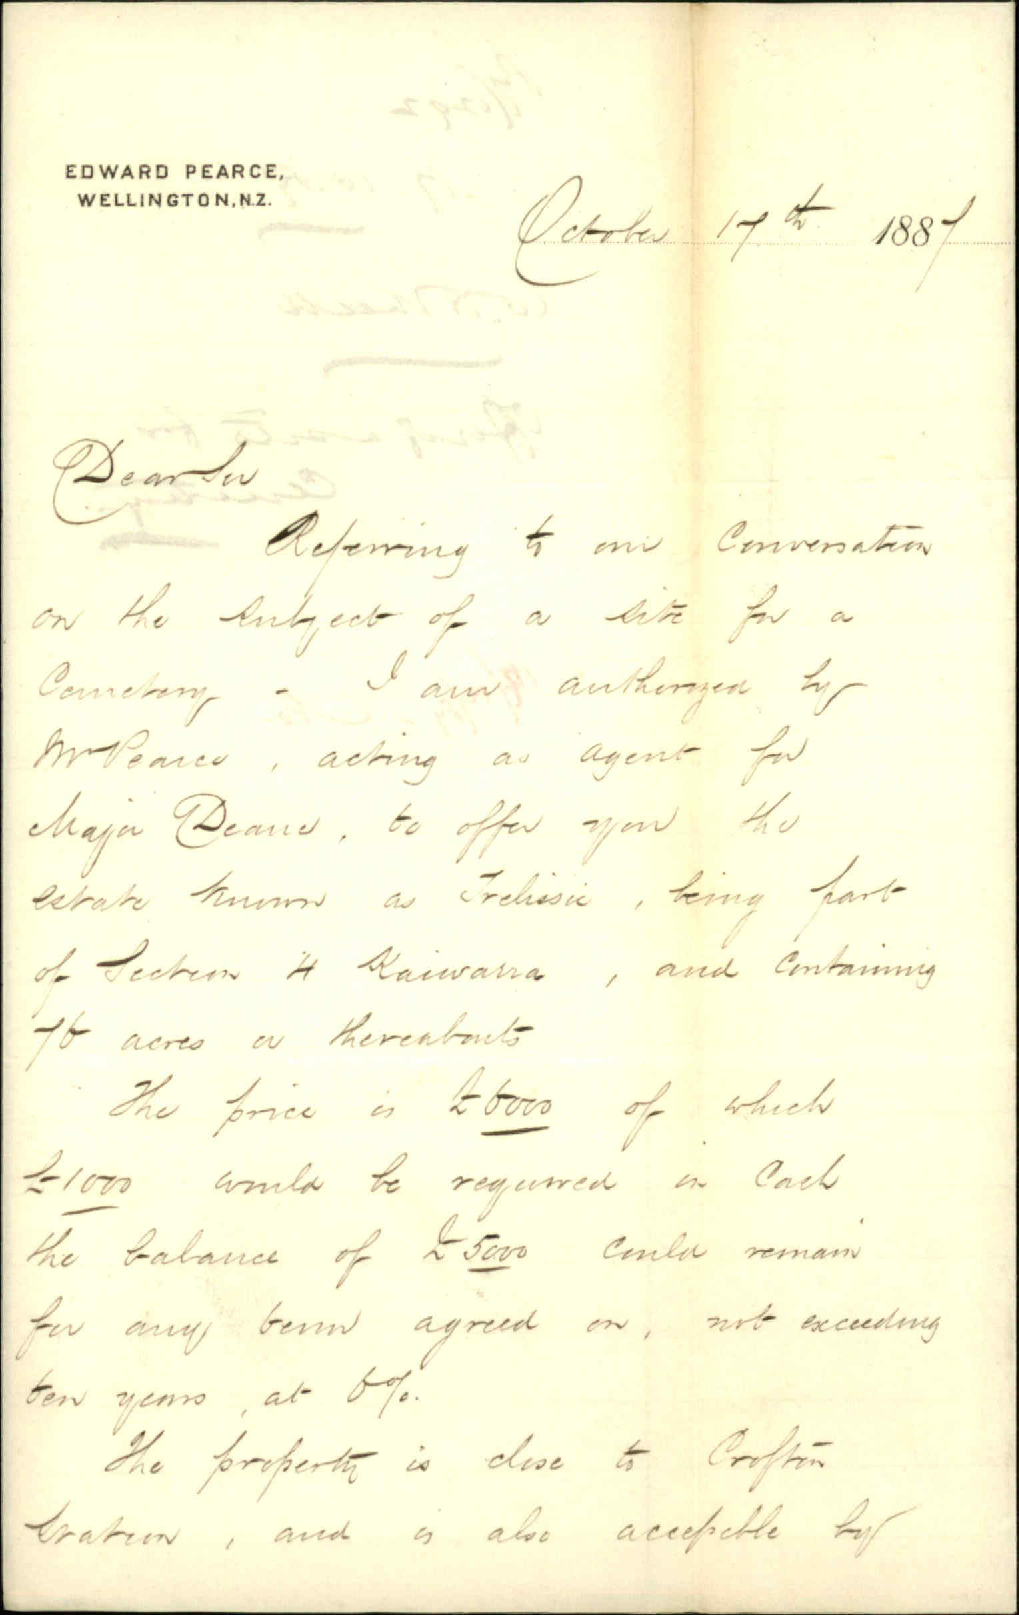 EDWARD PEARCE,
WELLINGTON, N.Z.
October 17th 1887
Dear Sir
Referring to our Conversation
on the subject of a site for a
Cemetery - I am authorized by
Mr Pearce, acting as agent for
Major Deane, to offer you the
estate known as Trelissic, being part
of Section 4 Kaiwarra, and containing
76 acres or thereabouts
The price is £6000 of which
£1000 would be required in Cash
the balance of £5000 could remain
for any term agreed on, not exceeding
ten years, at 6%.
The property is close to Crofton
Station, and is also accessible by